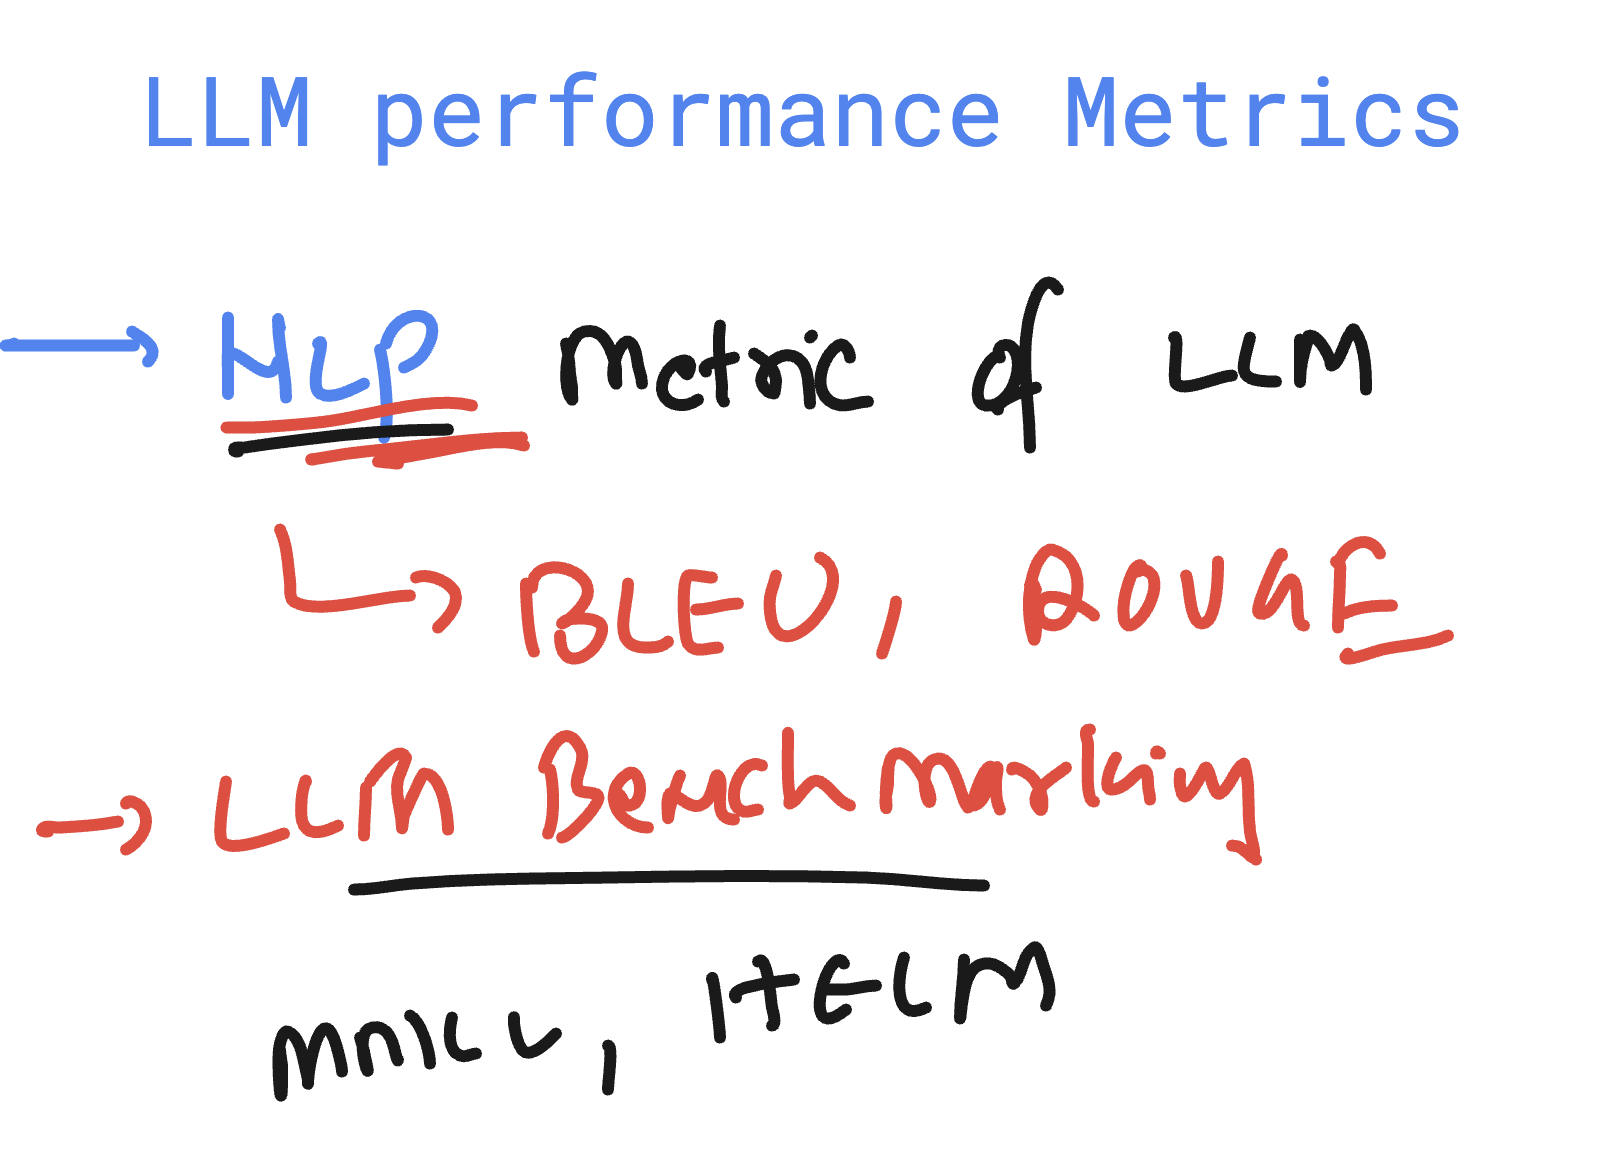 LLM performance Metrics
NLP Metric of LLM
BLEU, ROUGE
LLM Benchmarking
HELM